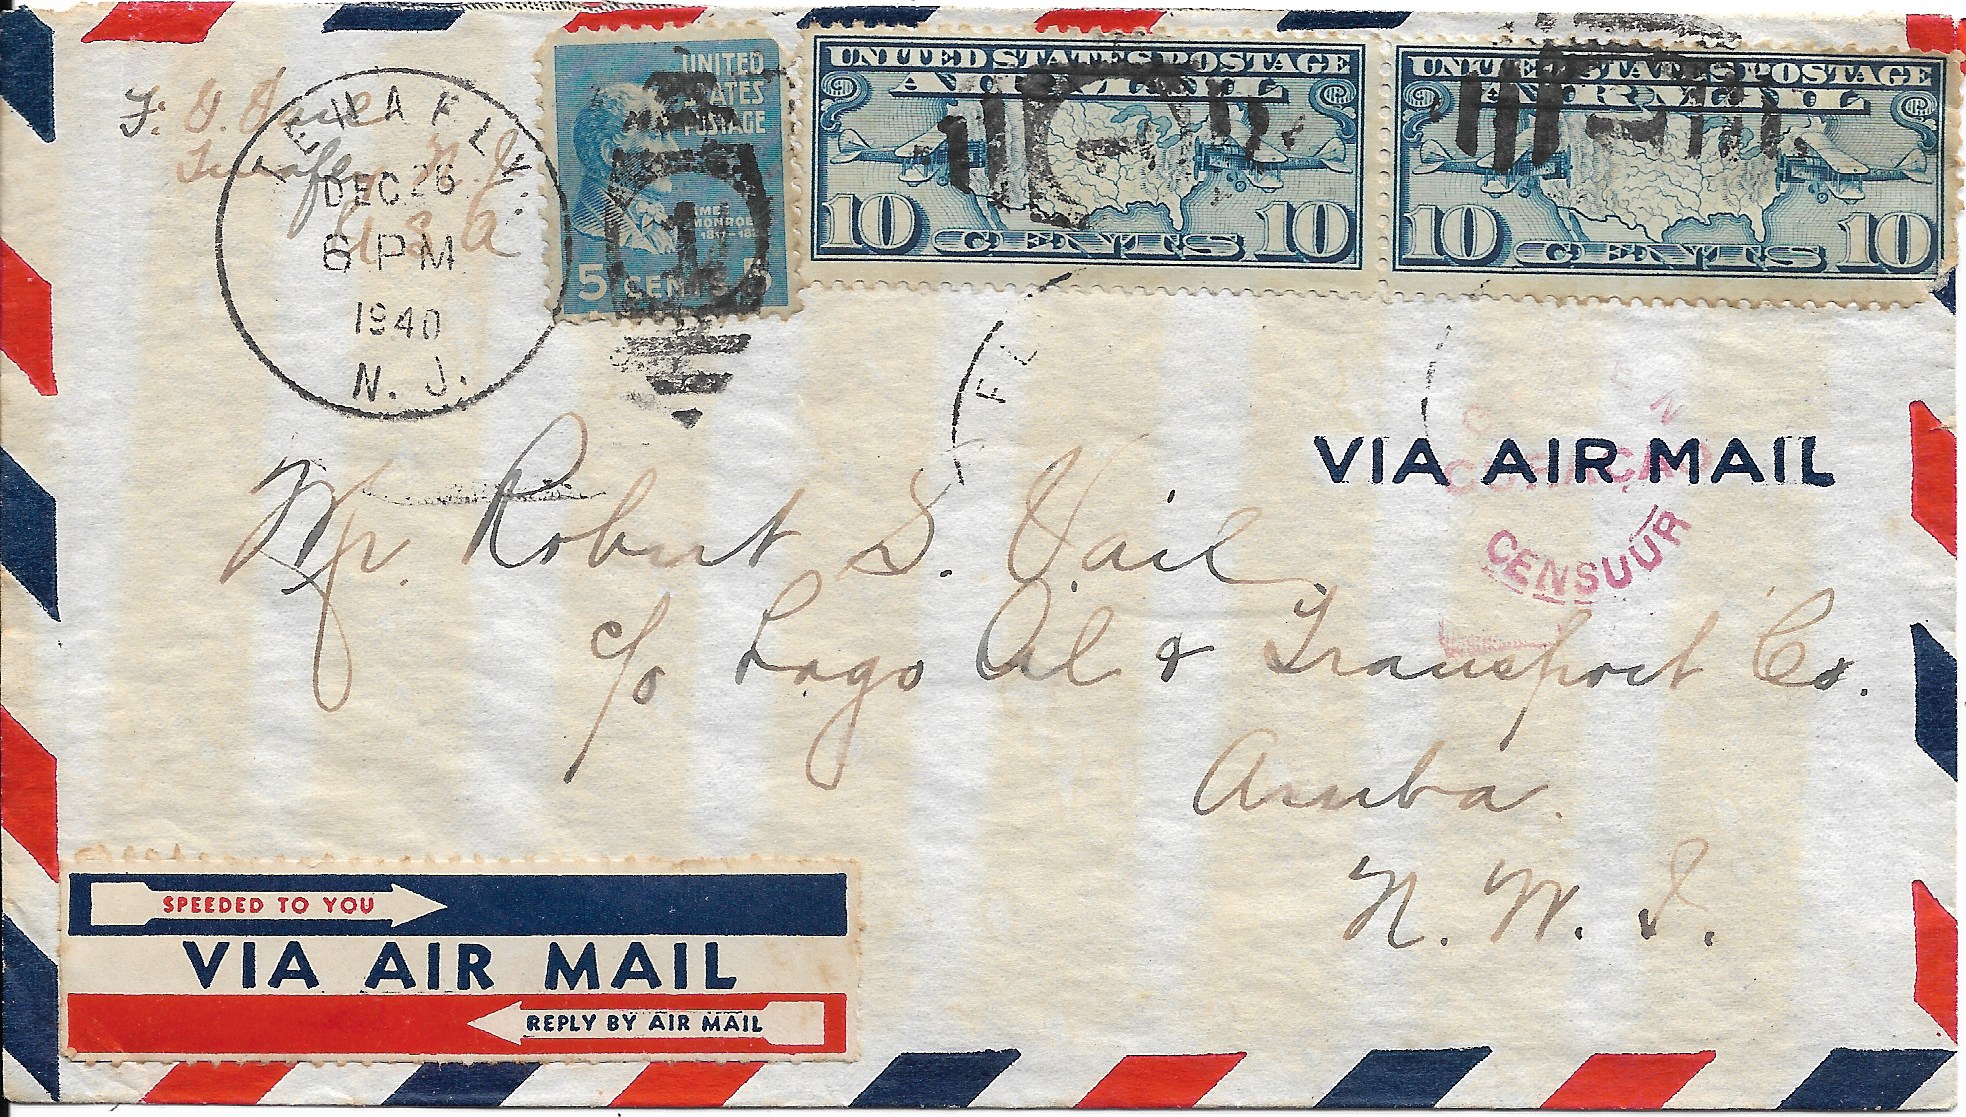 TENAFLY.
DEC 26
6 PM
1940
N. J.
F. V.
Tenafly N. J.
U. S. A
UNITED
STATES
POSTAGE
JAMES
MONROE
5 CENTS 5
UNITED STATES POSTAGE
AIR MAIL
10 CENTS 10
UNITED STATES POSTAGE
AIR MAIL
10 CENTS 10
FL
VIA AIR MAIL
CURAÇAO
CENSUUR
Mr. Robert S. Vail.
c/o Lago Oil & Transport Co.
Aruba.
N. W. I.
SPEEDED TO YOU
VIA AIR MAIL
REPLY BY AIR MAIL